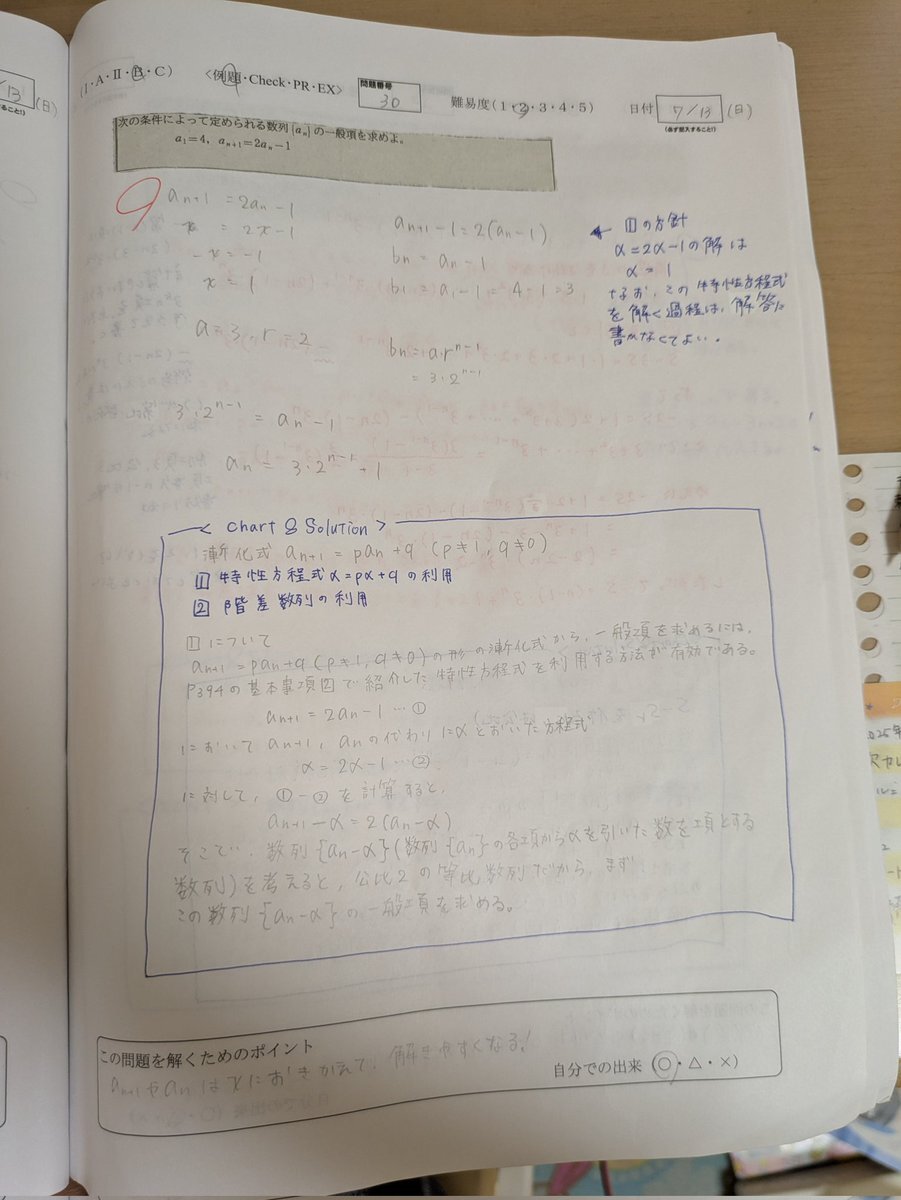 (I・A・II・B・C)　〈例題・Check・PR・EX〉　問題番号 30　難易度(1・2・3・4・5)　日付 7/13 (日)
(必ず記入すること!)
次の条件によって定められる数列{aₙ}の一般項を求めよ。
a₁=4, aₙ₊₁=2aₙ−1
aₙ₊₁ = 2aₙ−1
x = 2x−1
−x = −1
x = 1
a=3, r=2
aₙ₊₁−1=2(aₙ−1)
bₙ = aₙ−1
b₁ = a₁−1 = 4−1=3
bₙ = a・rⁿ⁻¹
= 3・2ⁿ⁻¹
3・2ⁿ⁻¹ = aₙ−1
aₙ = 3・2ⁿ⁻¹+1
← 1の方針
α=2α−1の解は
α=1
なお、この特性方程式
を解く過程は、解答に
書かなくてよい。
< Chart & Solution >
漸化式 aₙ₊₁ = paₙ+q (p≠1, q≠0)
1 特性方程式 α=pα+q の利用
2 階差数列の利用
1 について
aₙ₊₁=paₙ+q (p≠1, q≠0)の形の漸化式から、一般項を求めるには、
P394の基本事項図で紹介した特性方程式を利用する方法が有効である。
aₙ₊₁=2aₙ−1 …①
において aₙ₊₁, aₙの代わりにαとおいた方程式
α=2α−1 …②
に対して、①−②を計算すると、
aₙ₊₁−α=2(aₙ−α)
そこで、数列{aₙ−α}(数列{aₙ}の各項からαを引いた数を項とする
数列)を考えると、公比2の等比数列だから、まず
この数列{aₙ−α}の一般項を求める。
この問題を解くためのポイント
aₙ₊₁やaₙはxにおきかえて、解きやすくなる!
自分での出来 (◎・△・×)
/13
(日)